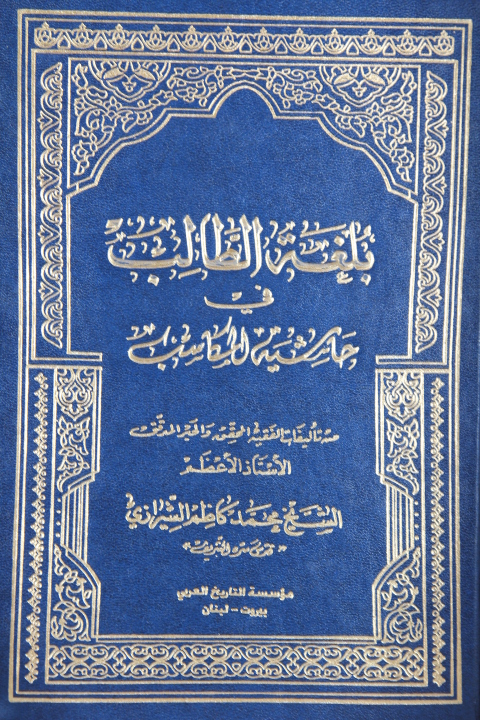 بُلغَة الطَّالِبْ
في
حاشيه المكاسب
من تأليفات الفقيه المحقق والحبر المدقق
الأستاذ الأعظم
الشيخ محمد كاظم الشيرازي
«قدس سره الشريف»
مؤسسة التاريخ العربي
بيروت - لبنان